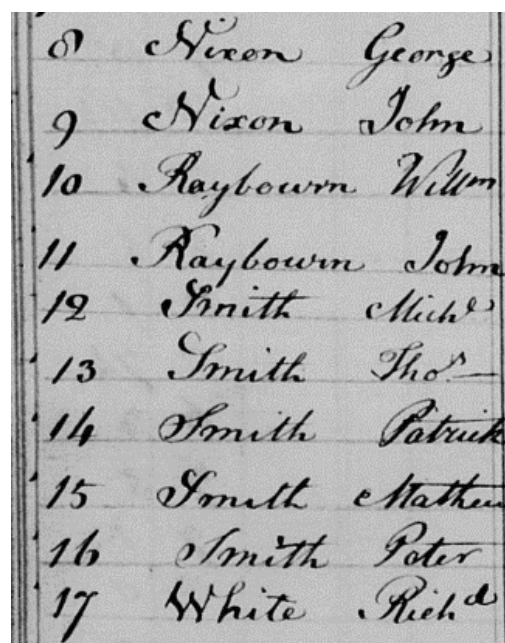 8 Nixon George
9 Nixon John
10 Raybourn Willm
11 Raybourn John
12 Smith Michl
13 Smith Thos
14 Smith Patrick
15 Smith Mathew
16 Smith Peter
17 White Richd